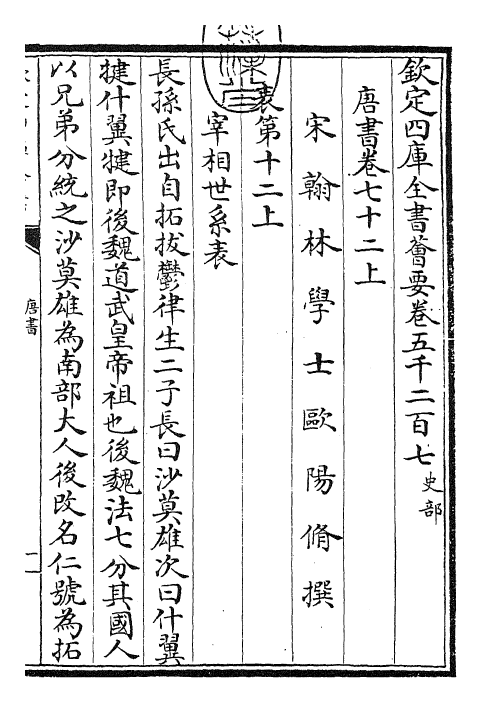 欽定四庫全書薈要卷五千二百七 史部
唐書卷七十二上
宋翰林學士歐陽脩撰
表第十二上
宰相世系表
長孫氏出自拓拔鬱律生二子長曰沙莫雄次曰什翼
揵什翼揵即後魏道武皇帝祖也後魏法七分其國人
以兄弟分統之沙莫雄為南部大人後改名仁號為拓
唐書
一